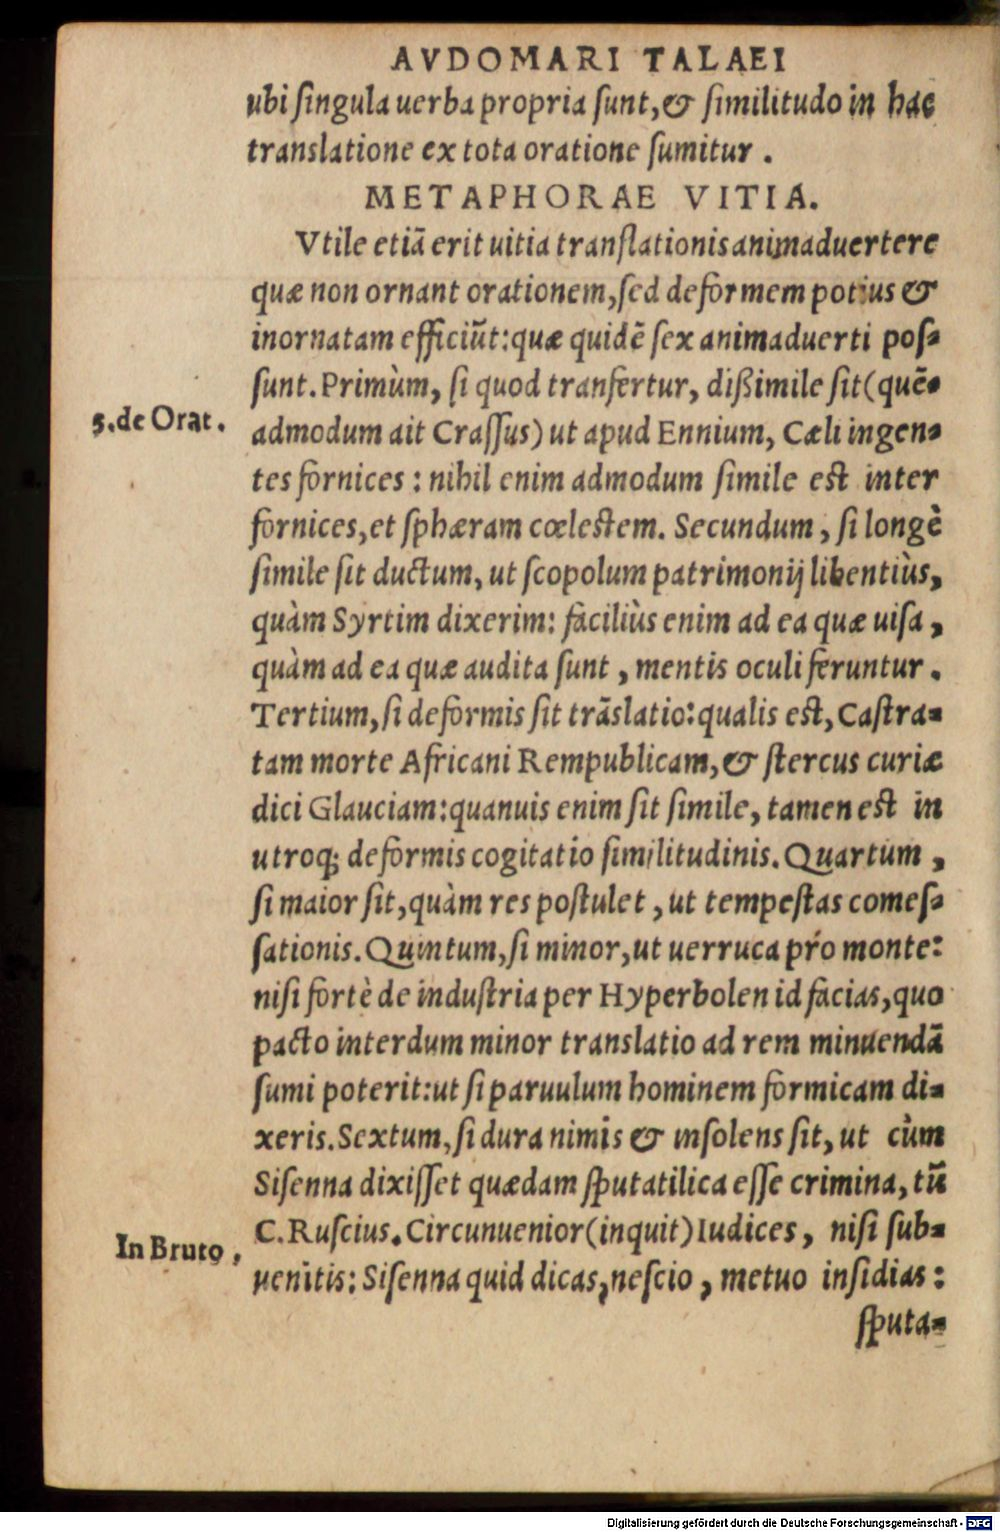 AVDOMARI TALAEI
ubi ſingula uerba propria ſunt, & ſimilitudo in hac
translatione ex tota oratione ſumitur .
METAPHORAE VITIA.
Vtile etiã erit uitia tranſlationis animaduertere
quæ non ornant orationem, ſed deformem potius &
inornatam efficiũt: quæ quidẽ ſex animaduerti poſ-
ſunt. Primùm, ſi quod tranſertur, dißimile ſit (quẽ-
5. de Orat.
admodum ait Craſſus) ut apud Ennium, Cæli ingen-
tes fornices : nihil enim admodum ſimile eſt inter
fornices, et ſphæram cœleſtem. Secundum, ſi longè
ſimile ſit ductum, ut ſcopolum patrimonij libentiùs,
quàm Syrtim dixerim: faciliùs enim ad ea quæ uiſa,
quàm ad ea quæ audita ſunt, mentis oculi feruntur.
Tertium, ſi deformis ſit trãslatio: qualis eſt, Caſtra-
tam morte Africani Rempublicam, & ſtercus curiæ
dici Glauciam: quanuis enim ſit ſimile, tamen eſt in
utroq; deformis cogitatio ſimilitudinis. Quartum,
ſi maior ſit, quàm res poſtulet, ut tempeſtas comeſ-
ſationis. Quintum, ſi minor, ut uerruca pro monte:
niſi fortè de induſtria per Hyperbolen id facias, quo
pacto interdum minor translatio ad rem minuendã
ſumi poterit: ut ſi paruulum hominem formicam di-
xeris. Sextum, ſi dura nimis & inſolens ſit, ut cùm
Siſenna dixiſſet quædam ſputatilica eſſe crimina, tũ
C. Ruſcius. Circunuenior (inquit) Iudices, niſi ſub-
In Bruto,
uenitis: Siſenna quid dicas, neſcio, metuo inſidias:
ſputa-
Digitalisierung gefördert durch die Deutsche Forschungsgemeinschaft - DFG